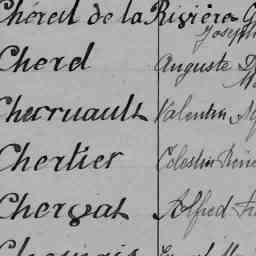 Chéreil de la Rivière
Joseph
Cherel Auguste
Cherruault Valentin
Chertier Célestin René
Chervat Alfred